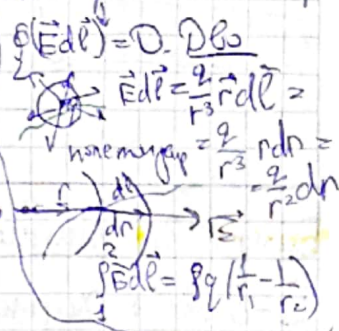 ∮(E⃗dl⃗) = 0. D-во
L
E⃗dl⃗ = q/r³ r⃗dl⃗ =
= q/r³ rdr =
= q/r² dr
r dl
dr E⃗
∫₁² E⃗dl⃗ = ∫q(1/r₁ - 1/r₂)